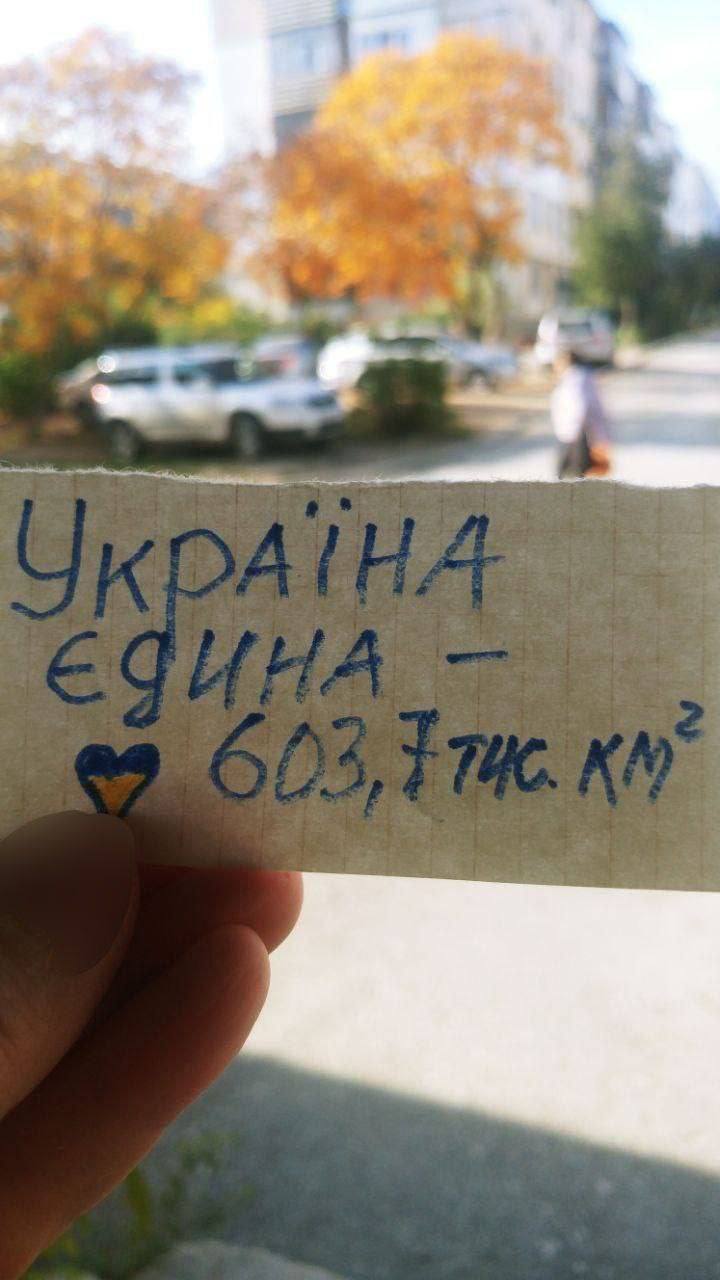 Україна
єдина –
603,7 тис. км²